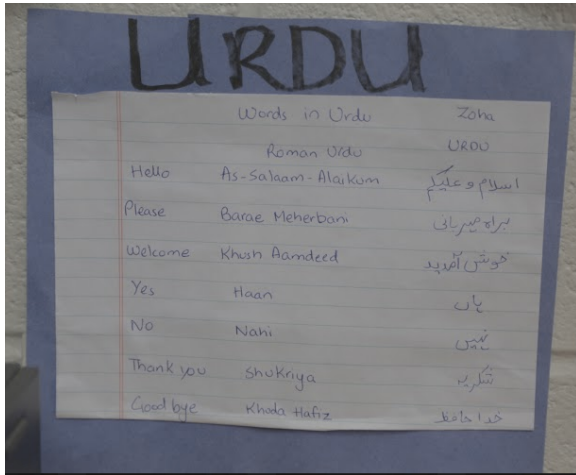 URDU
Words in Urdu Zoha
Roman Urdu URDU
Hello As-Salaam-Alaikum اسلام و علیکم
Please Barae Meherbani براہ مہربانی
Welcome Khush Aamdeed خوش آمدید
Yes Haan ہاں
No Nahi نہیں
Thank you Shukriya شکریہ
Good bye Khuda Hafiz خدا حافظ